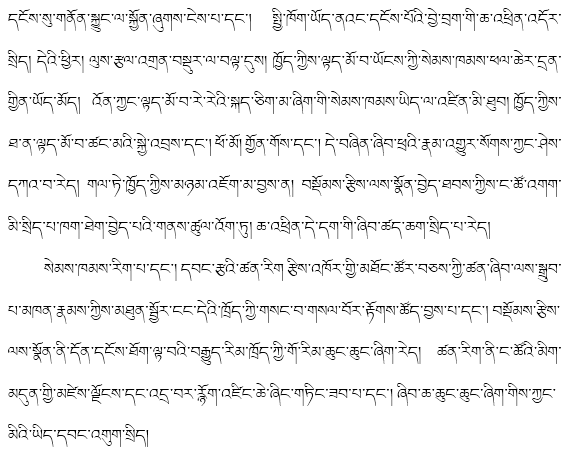 དངོས་སུ་གནོན་སྐྱུང་ལ་སྐྱོན་ཞུགས་ངེས་པ་དང་། སྤྱི་ཁོག་ཡོད་ནའང་དངོས་པོའི་བྱེ་བྲག་གི་ཆ་འཕྲིན་འདོར་
སྲིད། དེའི་ཕྱིར། ལུས་རྩལ་འགྲན་བསྡུར་ལ་བལྟ་དུས། ཁྱོད་ཀྱིས་ལྟད་མོ་བ་ཡོངས་ཀྱི་སེམས་ཁམས་ཕལ་ཆེར་དྲན་
གྱིན་ཡོད་མོད། འོན་ཀྱང་ལྟད་མོ་བ་རེ་རེའི་སྐད་ཅིག་མ་ཞིག་གི་སེམས་ཁམས་ཡིད་ལ་འཛིན་མི་ཐུབ། ཁྱོད་ཀྱིས་
ཐ་ན་ལྟད་མོ་བ་ཚང་མའི་སྐྱེ་འབྲས་དང་། ཕོ་མོ། གྱོན་གོས་དང་། དེ་བཞིན་ཞིབ་ཕྲའི་རྣམ་འགྱུར་སོགས་ཀྱང་ཤེས་
དཀའ་བ་རེད། གལ་ཏེ་ཁྱོད་ཀྱིས་མཉམ་འཇོག་མ་བྱས་ན། བསྡོམས་རྩིས་ལས་སྣོན་བྱེད་ཐབས་ཀྱིས་ང་ཚོ་འགག་
མི་སྲིད་པ་ཁག་ཐེག་བྱེད་པའི་གནས་ཚུལ་འོག་ཏུ། ཆ་འཕྲིན་དེ་དག་གི་ཞིབ་ཚད་ཆག་སྲིད་པ་རེད།
སེམས་ཁམས་རིག་པ་དང་། དབང་རྩའི་ཚན་རིག རྩིས་འཁོར་གྱི་མཐོང་ཚོར་བཅས་ཀྱི་ཚན་ཞིབ་ལས་སྒྲུབ་
པ་མཁན་རྣམས་ཀྱིས་མཐུན་སྦྱོར་ངང་དེའི་ཁྲོད་ཀྱི་གསང་བ་གསལ་བོར་རྟོགས་ཚོད་བྱས་པ་དང་། བསྡོམས་རྩིས་
ལས་སྣོན་ནི་དོན་དངོས་ཐོག་ལྟ་བའི་བརྒྱུད་རིམ་ཁྲོད་ཀྱི་གོ་རིམ་ཆུང་ཆུང་ཞིག་རེད། ཚན་རིག་ནི་ང་ཚོའི་མིག་
མདུན་གྱི་མཛེས་ལྗོངས་དང་འདྲ་བར་རྙོག་འཛིང་ཆེ་ཞིང་གཏིང་ཟབ་པ་དང་། ཞིབ་ཆ་ཆུང་ཆུང་ཞིག་གིས་ཀྱང་
མིའི་ཡིད་དབང་འགུག་སྲིད།